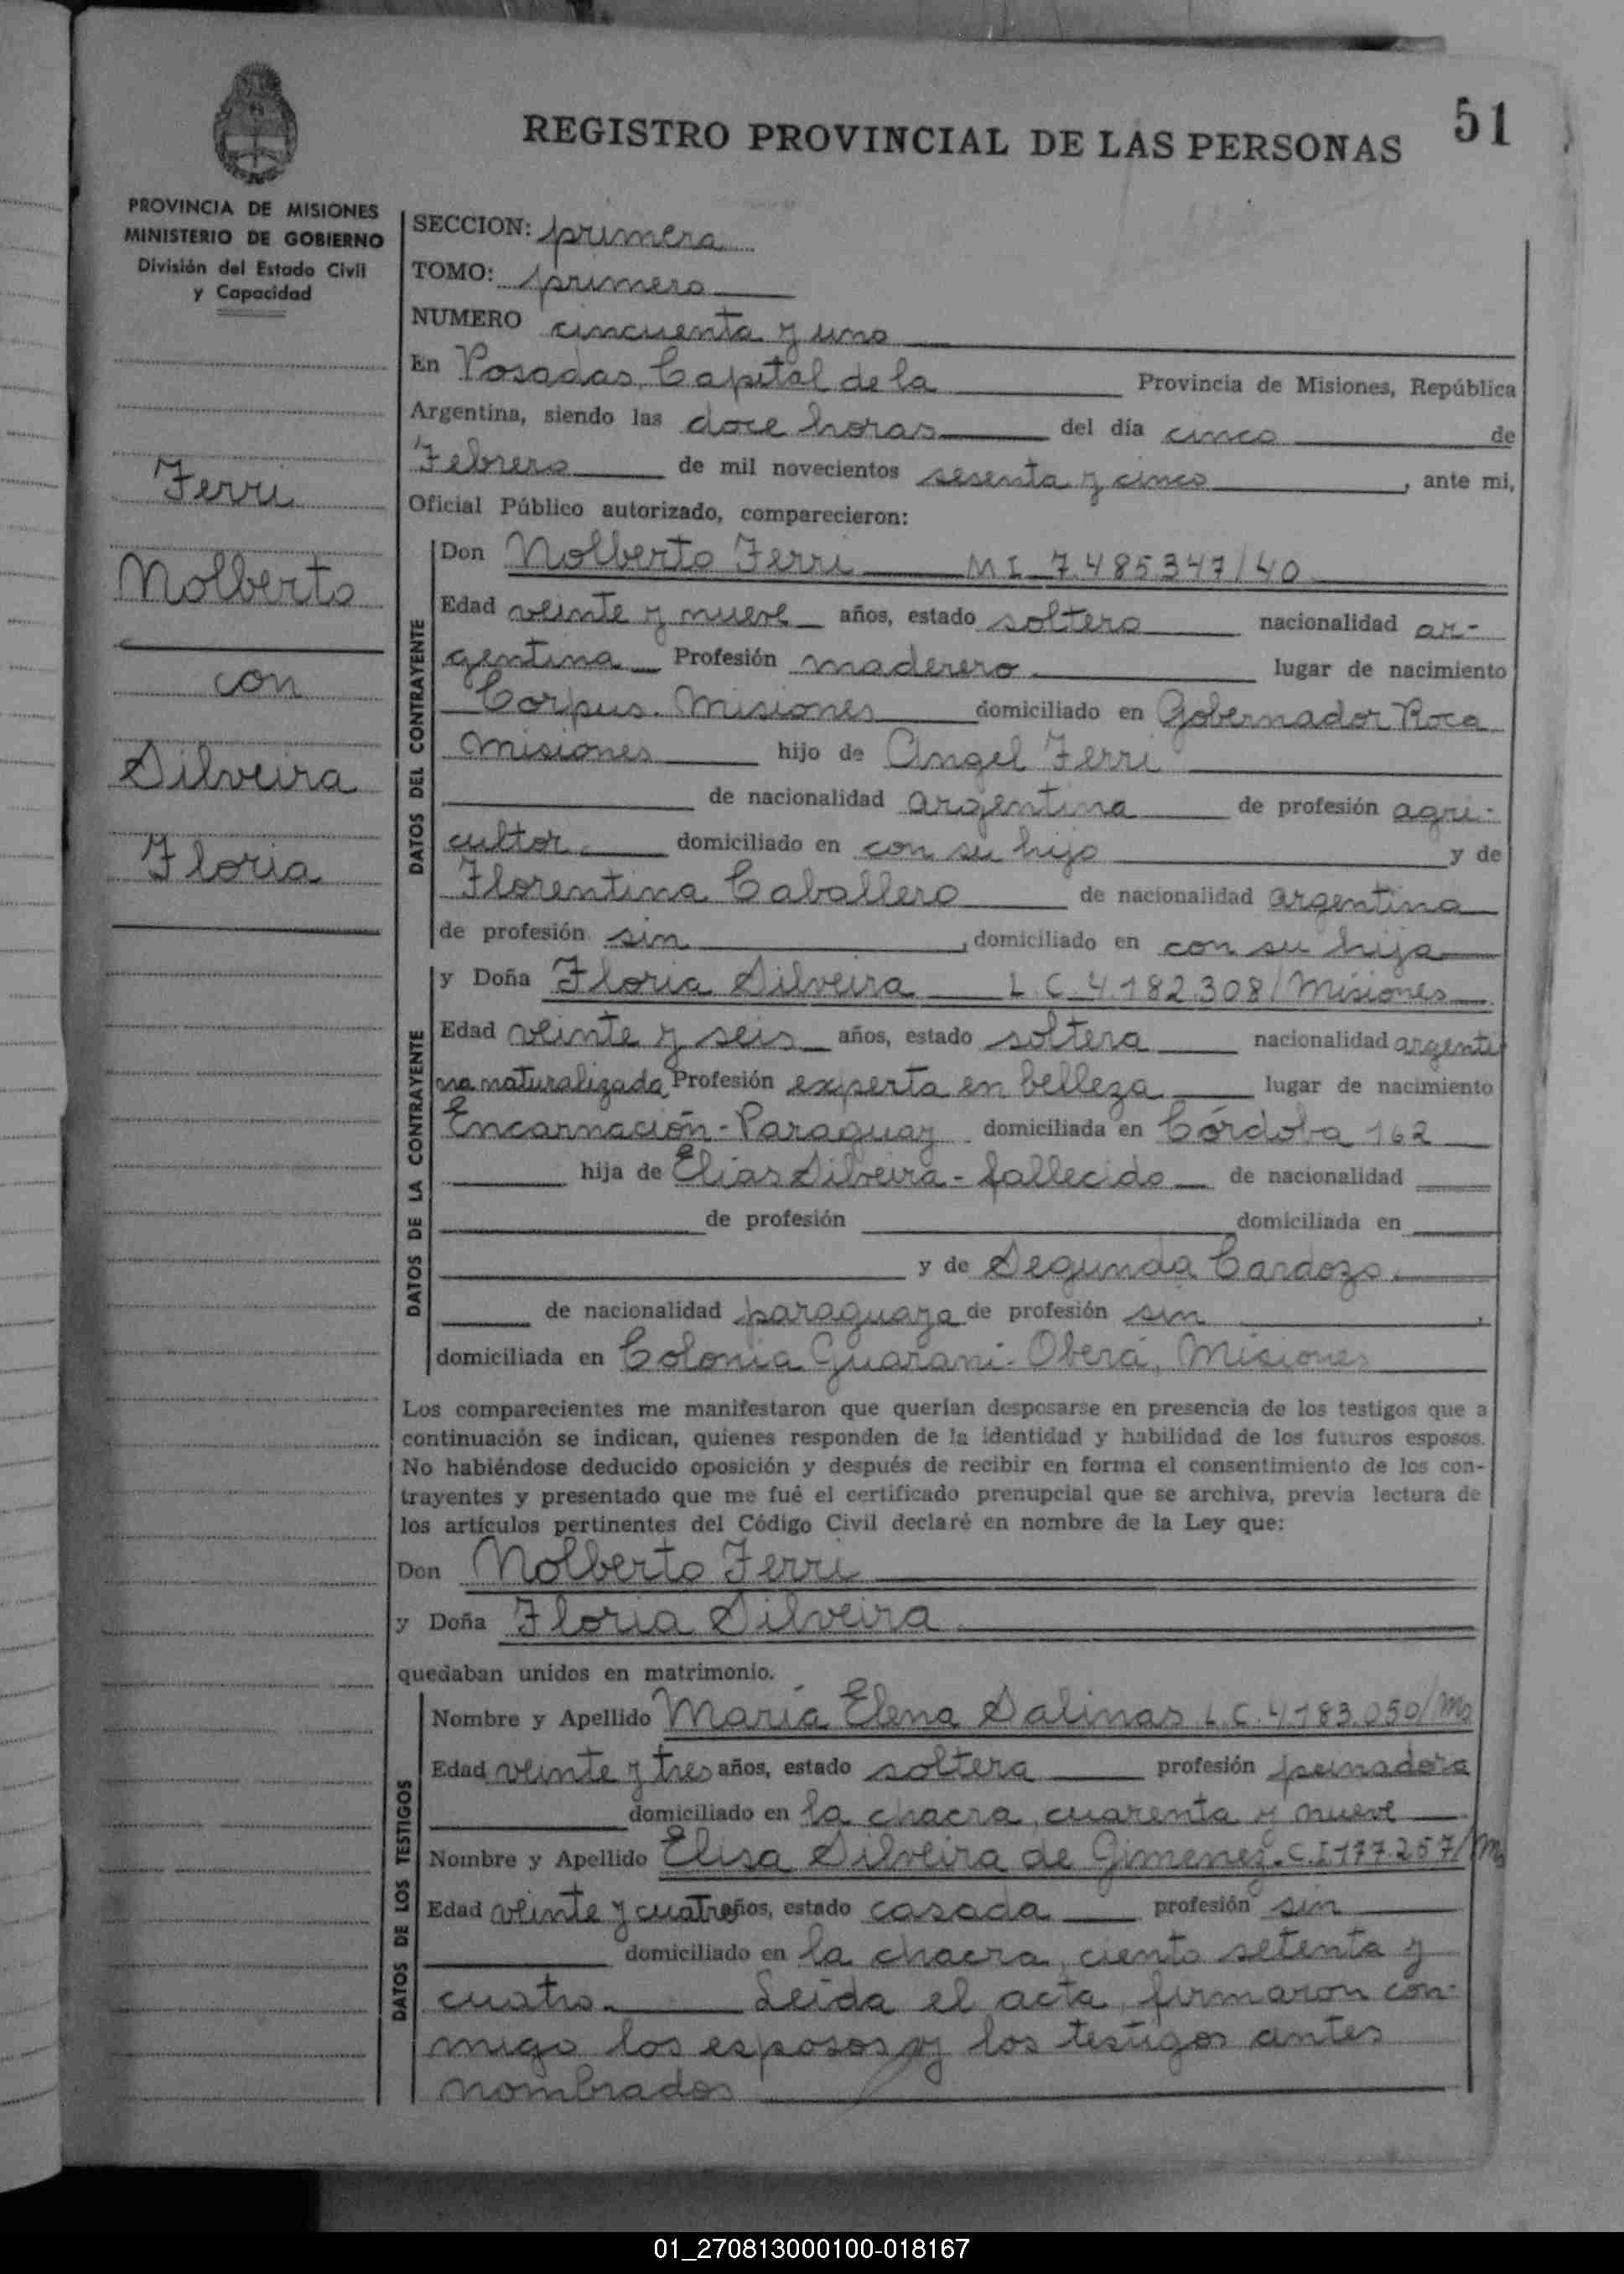 51
REGISTRO PROVINCIAL DE LAS PERSONAS
PROVINCIA DE MISIONES
MINISTERIO DE GOBIERNO
División del Estado Civil
y Capacidad
Ferri
Nolberto
con
Silveira
Floria
SECCION: primera
TOMO: primero
NUMERO cincuenta y uno
En Posadas, Capital de la Provincia de Misiones, República
Argentina, siendo las doce horas del día cinco de
Febrero de mil novecientos sesenta y cinco, ante mi,
Oficial Público autorizado, comparecieron:
DATOS DEL CONTRAYENTE
Don Nolberto Ferri MI 7.485347/40
Edad veinte y nueve años, estado soltero nacionalidad ar-
gentina Profesión maderero lugar de nacimiento
Corpus. Misiones domiciliado en Gobernador Roca
Misiones hijo de Angel Ferri
de nacionalidad argentina de profesión agri-
cultor domiciliado en con su hijo y de
Florentina Caballero de nacionalidad argentina
de profesión sin, domiciliado en con su hijo
DATOS DE LA CONTRAYENTE
y Doña Floria Silveira L.C. 4.182.308/Misiones
Edad veinte y seis años, estado soltera nacionalidad argenti
na naturalizada Profesión experta en belleza lugar de nacimiento
Encarnación-Paraguay domiciliada en Córdoba 162
hija de Elías Silveira - fallecido de nacionalidad
de profesión domiciliada en
y de Segunda Cardozo
de nacionalidad paraguaya de profesión sin,
domiciliada en Colonia Guaraní-Oberá, Misiones
Los comparecientes me manifestaron que querían desposarse en presencia de los testigos que a
continuación se indican, quienes responden de la identidad y habilidad de los futuros esposos.
No habiéndose deducido oposición y después de recibir en forma el consentimiento de los con-
trayentes y presentado que me fué el certificado prenupcial que se archiva, previa lectura de
los artículos pertinentes del Código Civil declaré en nombre de la Ley que:
Don Nolberto Ferri
y Doña Floria Silveira
quedaban unidos en matrimonio.
DATOS DE LOS TESTIGOS
Nombre y Apellido María Elena Salinas L.C. 4.183.050/Ms
Edad veinte y tres años, estado soltera profesión peinadora
domiciliado en la chacra, cuarenta y nueve
Nombre y Apellido Elisa Silveira de Gimenez. C.I 177.257/Ms
Edad veinte y cuatro años, estado casada profesión sin
domiciliado en la chacra, ciento setenta y
cuatro. Leída el acta, firmaron con-
migo los esposos y los testigos antes
nombrados
01_270813000100-018167